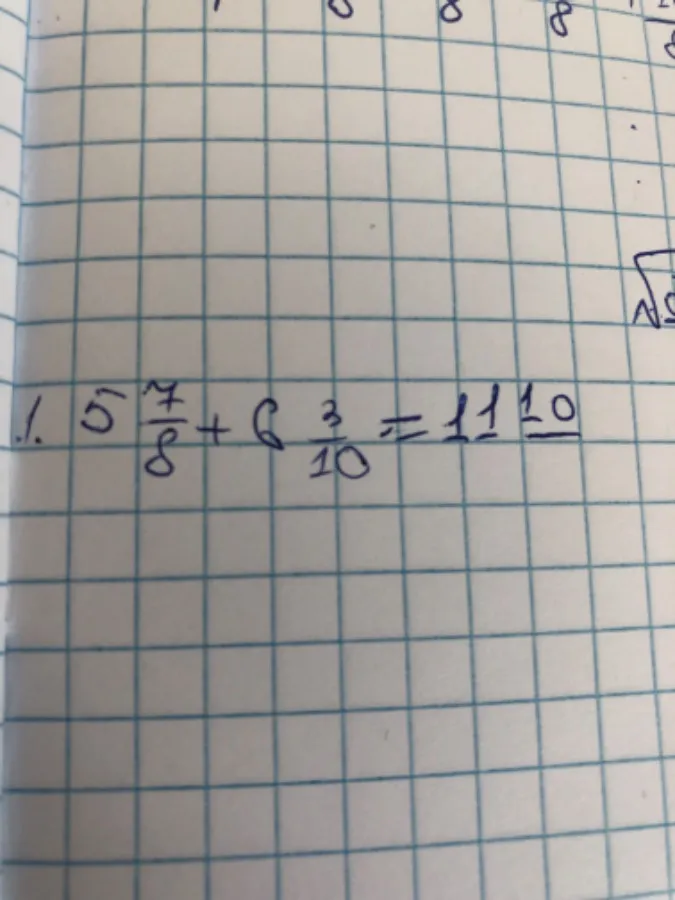 8 8
1. 5 7/8 + 6 3/10 = 11 10/